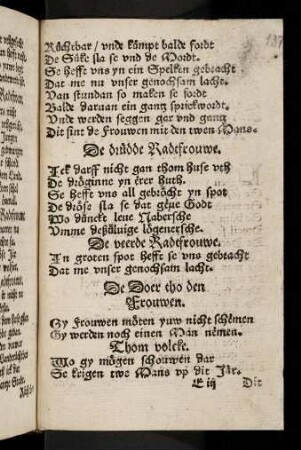 Rüchtbar / vnde kümpt balde fordt
De Säke sla se vnd de Mordt.
Se hefft vns yn ein Spelken gebracht
Dat me nu vnser genochsam lacht.
Van stundan so maken se fordt
Balde daruan ein gantz sprickwordt.
Vnde werden seggen ger vnd gantz
Dit sint de Frouwen mit den twen Mans.
De drüdde Radtfrouwe.
Ick darff nicht gan thom huse vth
De dröginne yn erer huth.
Se hefft vns all gebröcht yn spot
De dröse sla se dat geue Godt
Wo düncket leue Nabersche
Vmme desülvige lögenersche.
De veerde Radtfrouwe.
In groten spot hefft se vns gebracht
Dat me vnser genochsam lacht.
De Doer tho den
Frouwen.
Gy frouwen möten yuw nicht schemen
Gy werden noch einen Man nemen.
Thom volcke.
Wo gy mögen schouwen dar
Se krigen twe Mans vp dit Jär.
E iij Dit